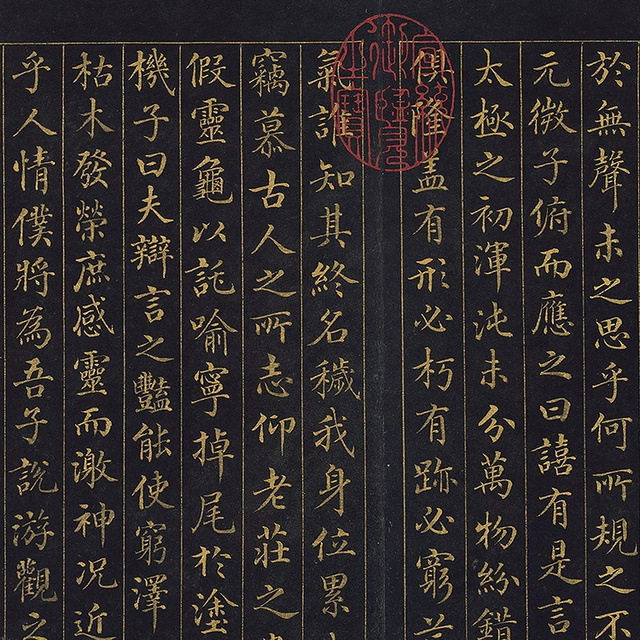 於無聲未之思乎何所規之不
元微子俯而應之曰譆有是言
太極之初渾沌未分萬物紛錯
俱隆盖有形必朽有跡必窮
氣誰知其終名穢我身位累
竊慕古人之所志仰老莊之
假靈龜以託喻寧掉尾於塗
機子曰夫辯言之豔能使窮澤
枯木發榮庶感靈而激神況近
乎人情僕將為吾子說游觀之
宣統御覽之寶